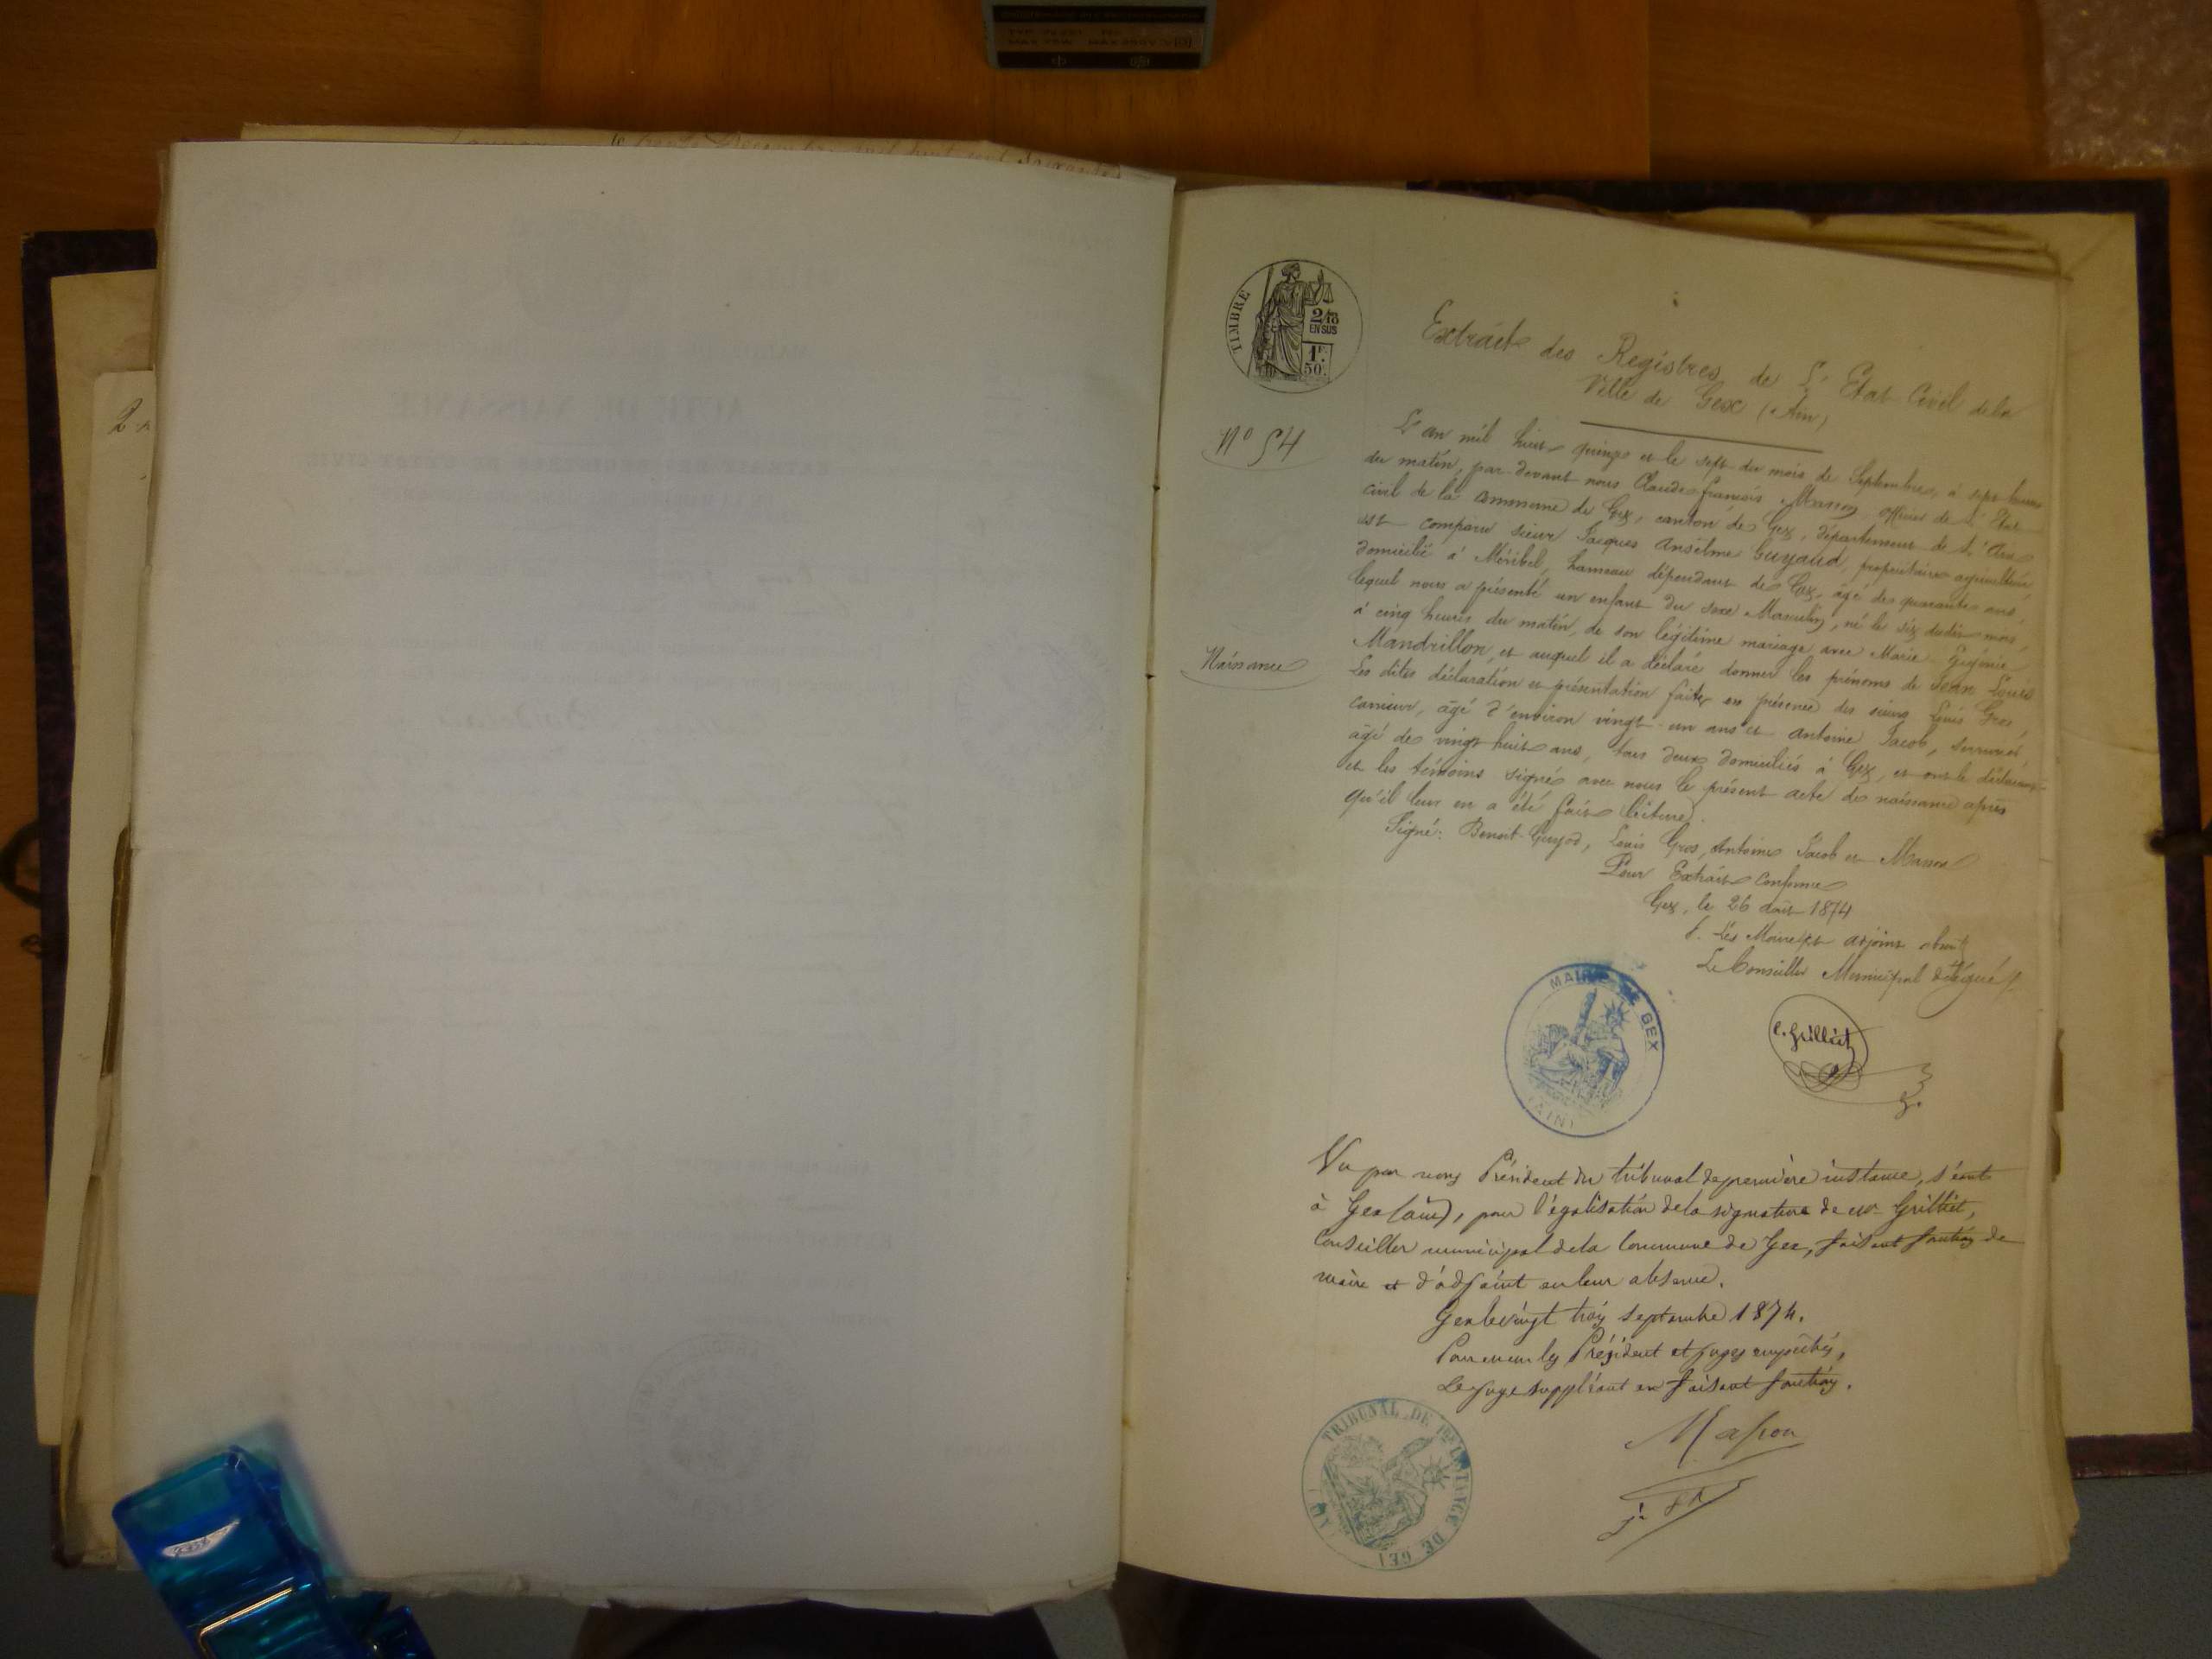 TIMBRE
2/10
EN SUS
1F.
50c.
Extrait des Registres de L'Etat Civil de la
Ville de Gex (Ain)
N° 54
L'an mil huit quinze et le sept du mois de Septembre, à sept heures
du matin, par devant nous Claude françois Masson officier de l'Etat
civil de la commune de Gex, canton de Gex, département de l'Ain
est comparu sieur Jacques Anselme Guyaud, propriétaire agriculteur,
domicilié à Méribel, hameau dépendant de Gex, âgé de quarante ans,
lequel nous a présenté un enfant du sexe Masculin, né le six dudit mois,
à cinq heures du matin, de son légitime mariage avec Marie
Naissance
Mandrillon, et auquel il a déclaré donner les prénoms de Jean Louis
Les dites déclaration et présentation faites en présence des sieurs Louis Gros,
âgé d'environ vingt-un ans et Antoine Jacob, serrurier
âgé de vingt huit ans, tous deux domiciliés à Gex, et ont le déclarant
et les témoins signé avec nous le présent acte de naissance après
qu'il leur en a été fait lecture.
Signé: Benoit-Guyod, Louis Gros, Antoine Jacob et Masson
Pour Extrait Conforme
Gex, le 26 août 1874
P. Les Maire et adjoint absents
Le Conseiller Municipal délégué
MAIRIE DE GEX
(AIN)
C. Grilliet
Vu par nous Président du tribunal de première instance, séant
à Gex (ain), pour légalisation de la signature de Mr Grilliet,
Conseiller municipal de la Commune de Gex, faisant fonction de
maire et d'adjoint en leur absence.
Gex le vingt trois septembre 1874.
Pour les Président et juges empêchés,
Le juge suppléant en faisant fonction.
Masson
TRIBUNAL DE 1ère INSTANCE DE GEX
(AIN)